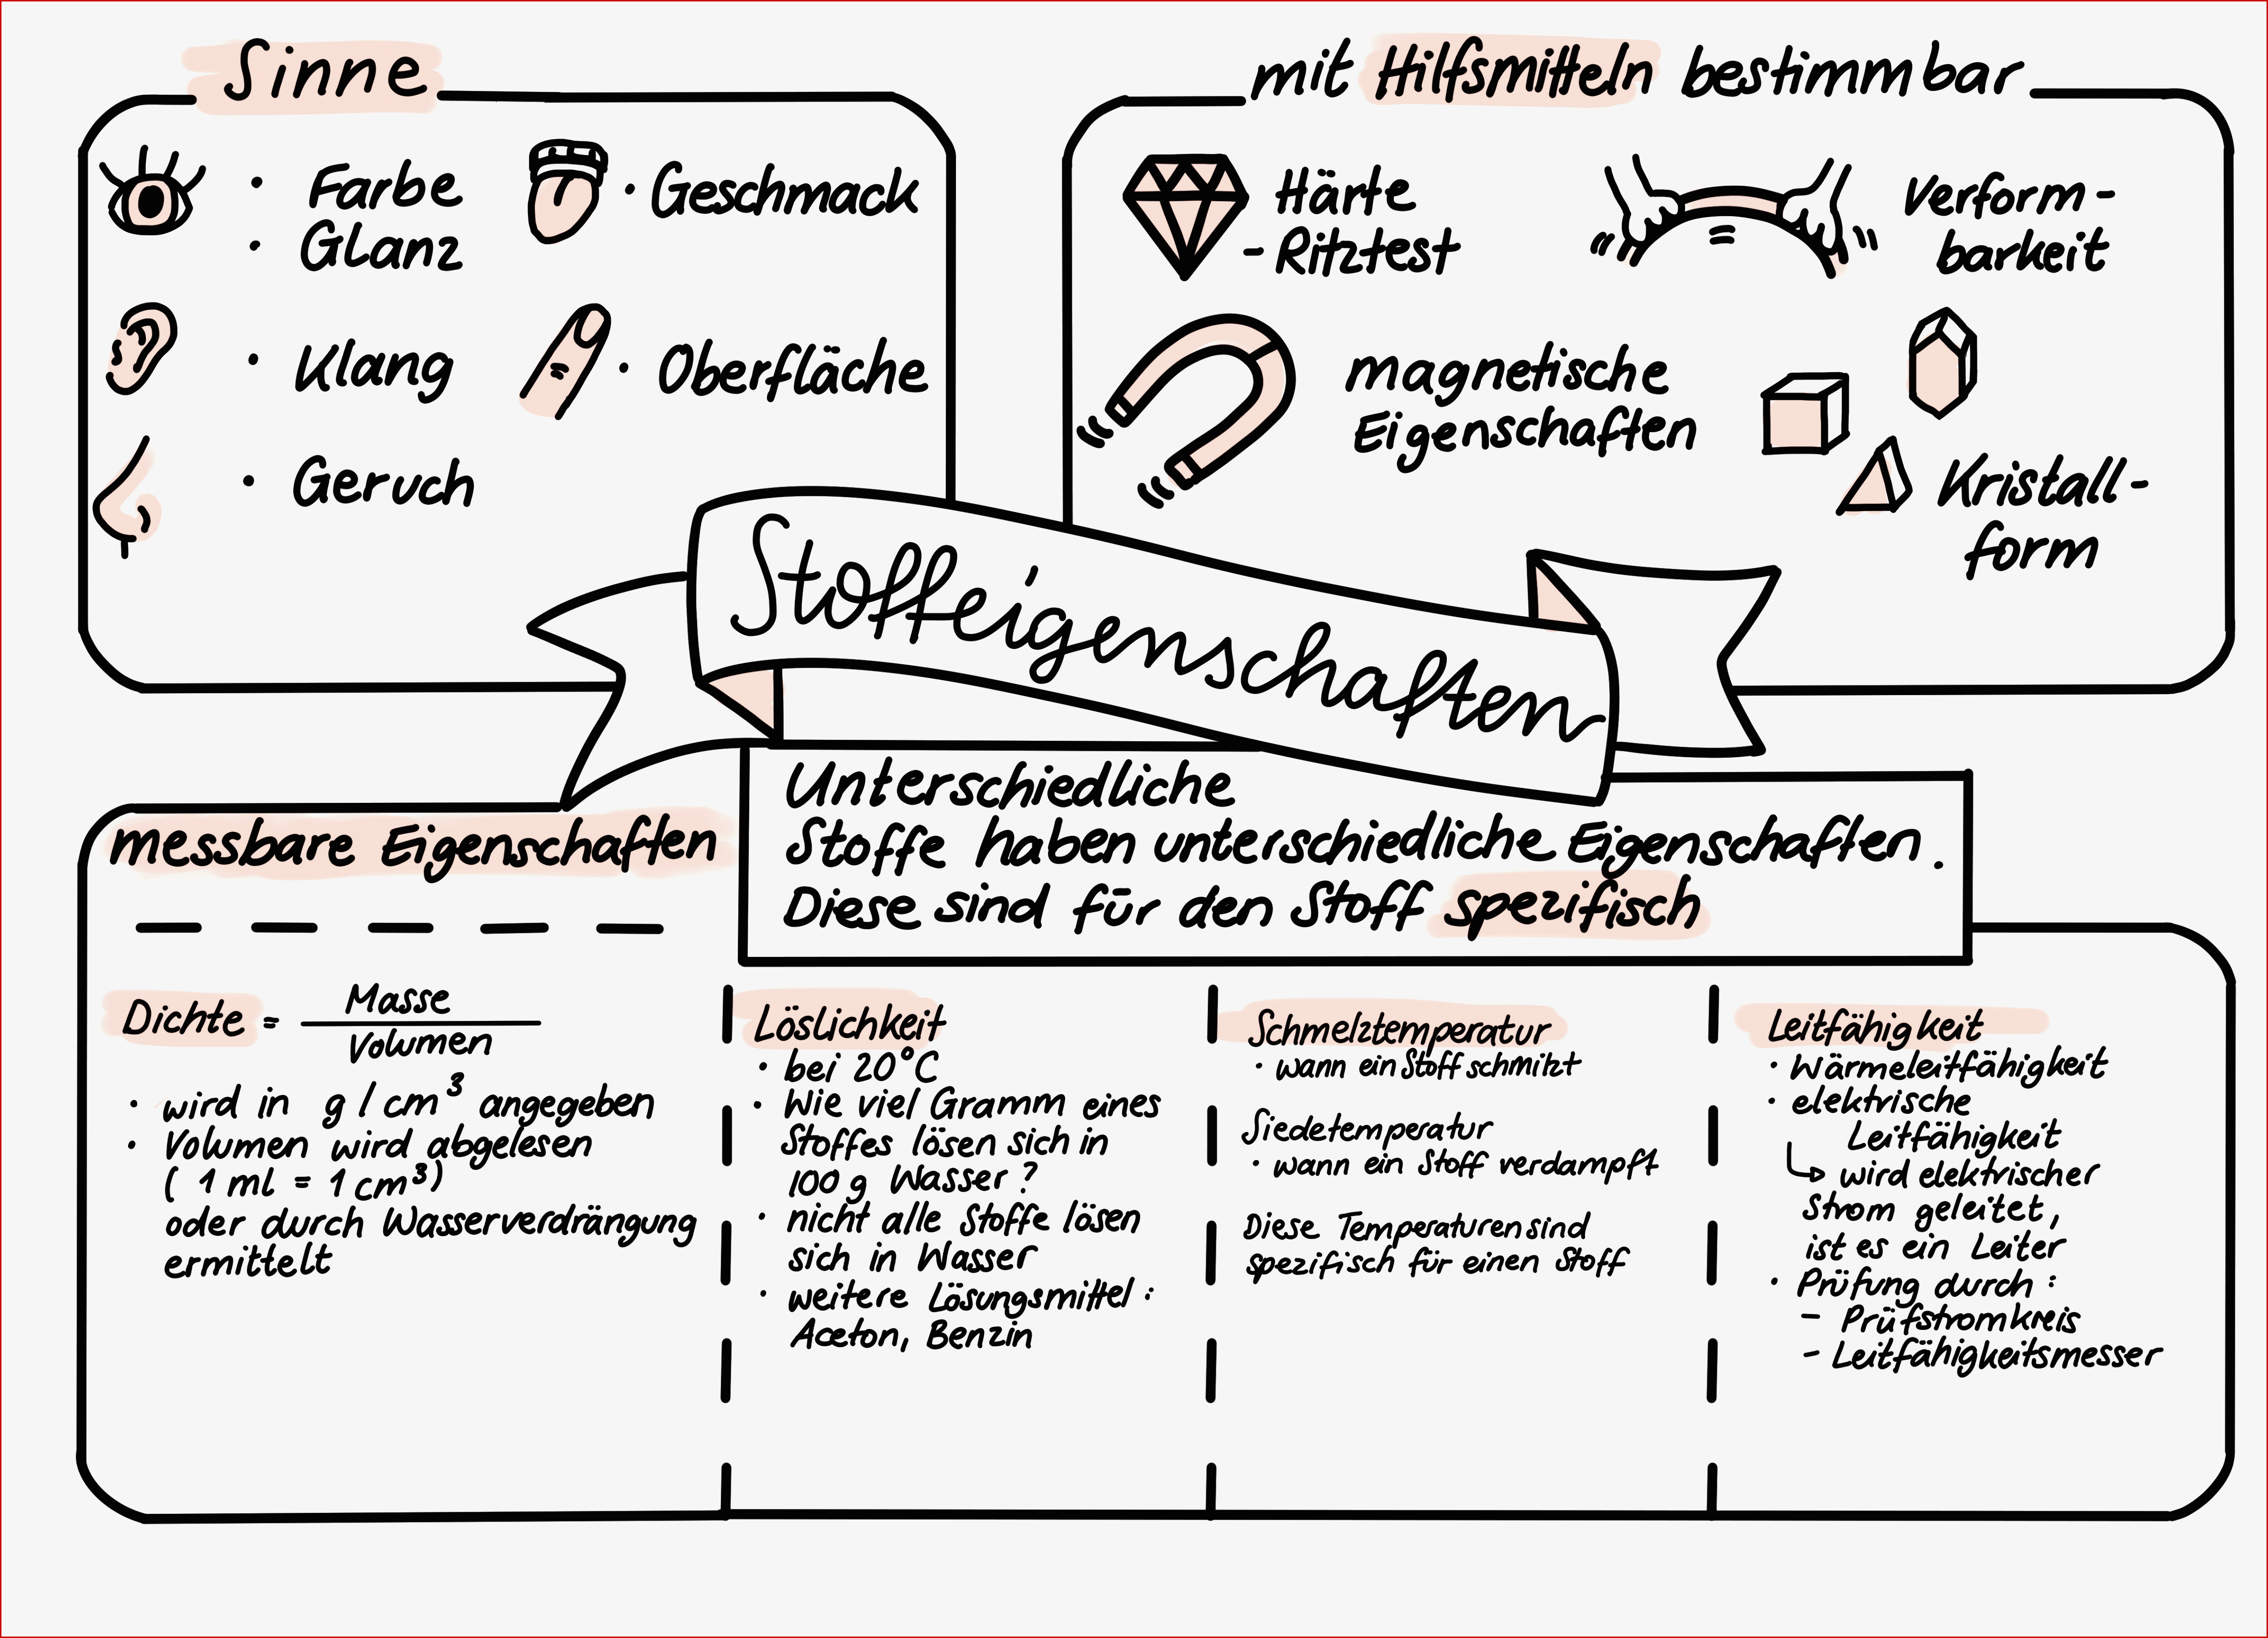 Sinne
· Farbe
· Glanz
· Klang
· Geruch
· Geschmack
· Oberfläche
mit Hilfsmitteln bestimmbar
Härte
- Ritztest
Verform-
barkeit
magnetische
Eigenschaften
Kristall-
form
Stoffeigenschaften
Unterschiedliche
Stoffe haben unterschiedliche Eigenschaften.
Diese sind für den Stoff spezifisch
messbare Eigenschaften
Dichte = Masse
Volumen
· wird in g/cm³ angegeben
· Volumen wird abgelesen
( 1 ml = 1 cm³)
oder durch Wasserverdrängung
ermittelt
Löslichkeit
· bei 20°C
· Wie viel Gramm eines
Stoffes lösen sich in
100 g Wasser?
· nicht alle Stoffe lösen
sich in Wasser
· weitere Lösungsmittel:
Aceton, Benzin
Schmelztemperatur
· wann ein Stoff schmilzt
Siedetemperatur
· wann ein Stoff verdampft
Diese Temperaturen sind
spezifisch für einen Stoff
Leitfähigkeit
· Wärmeleitfähigkeit
· elektrische
Leitfähigkeit
wird elektrischer
Strom geleitet,
ist es ein Leiter
· Prüfung durch:
- Prüfstromkreis
- Leitfähigkeitsmesser